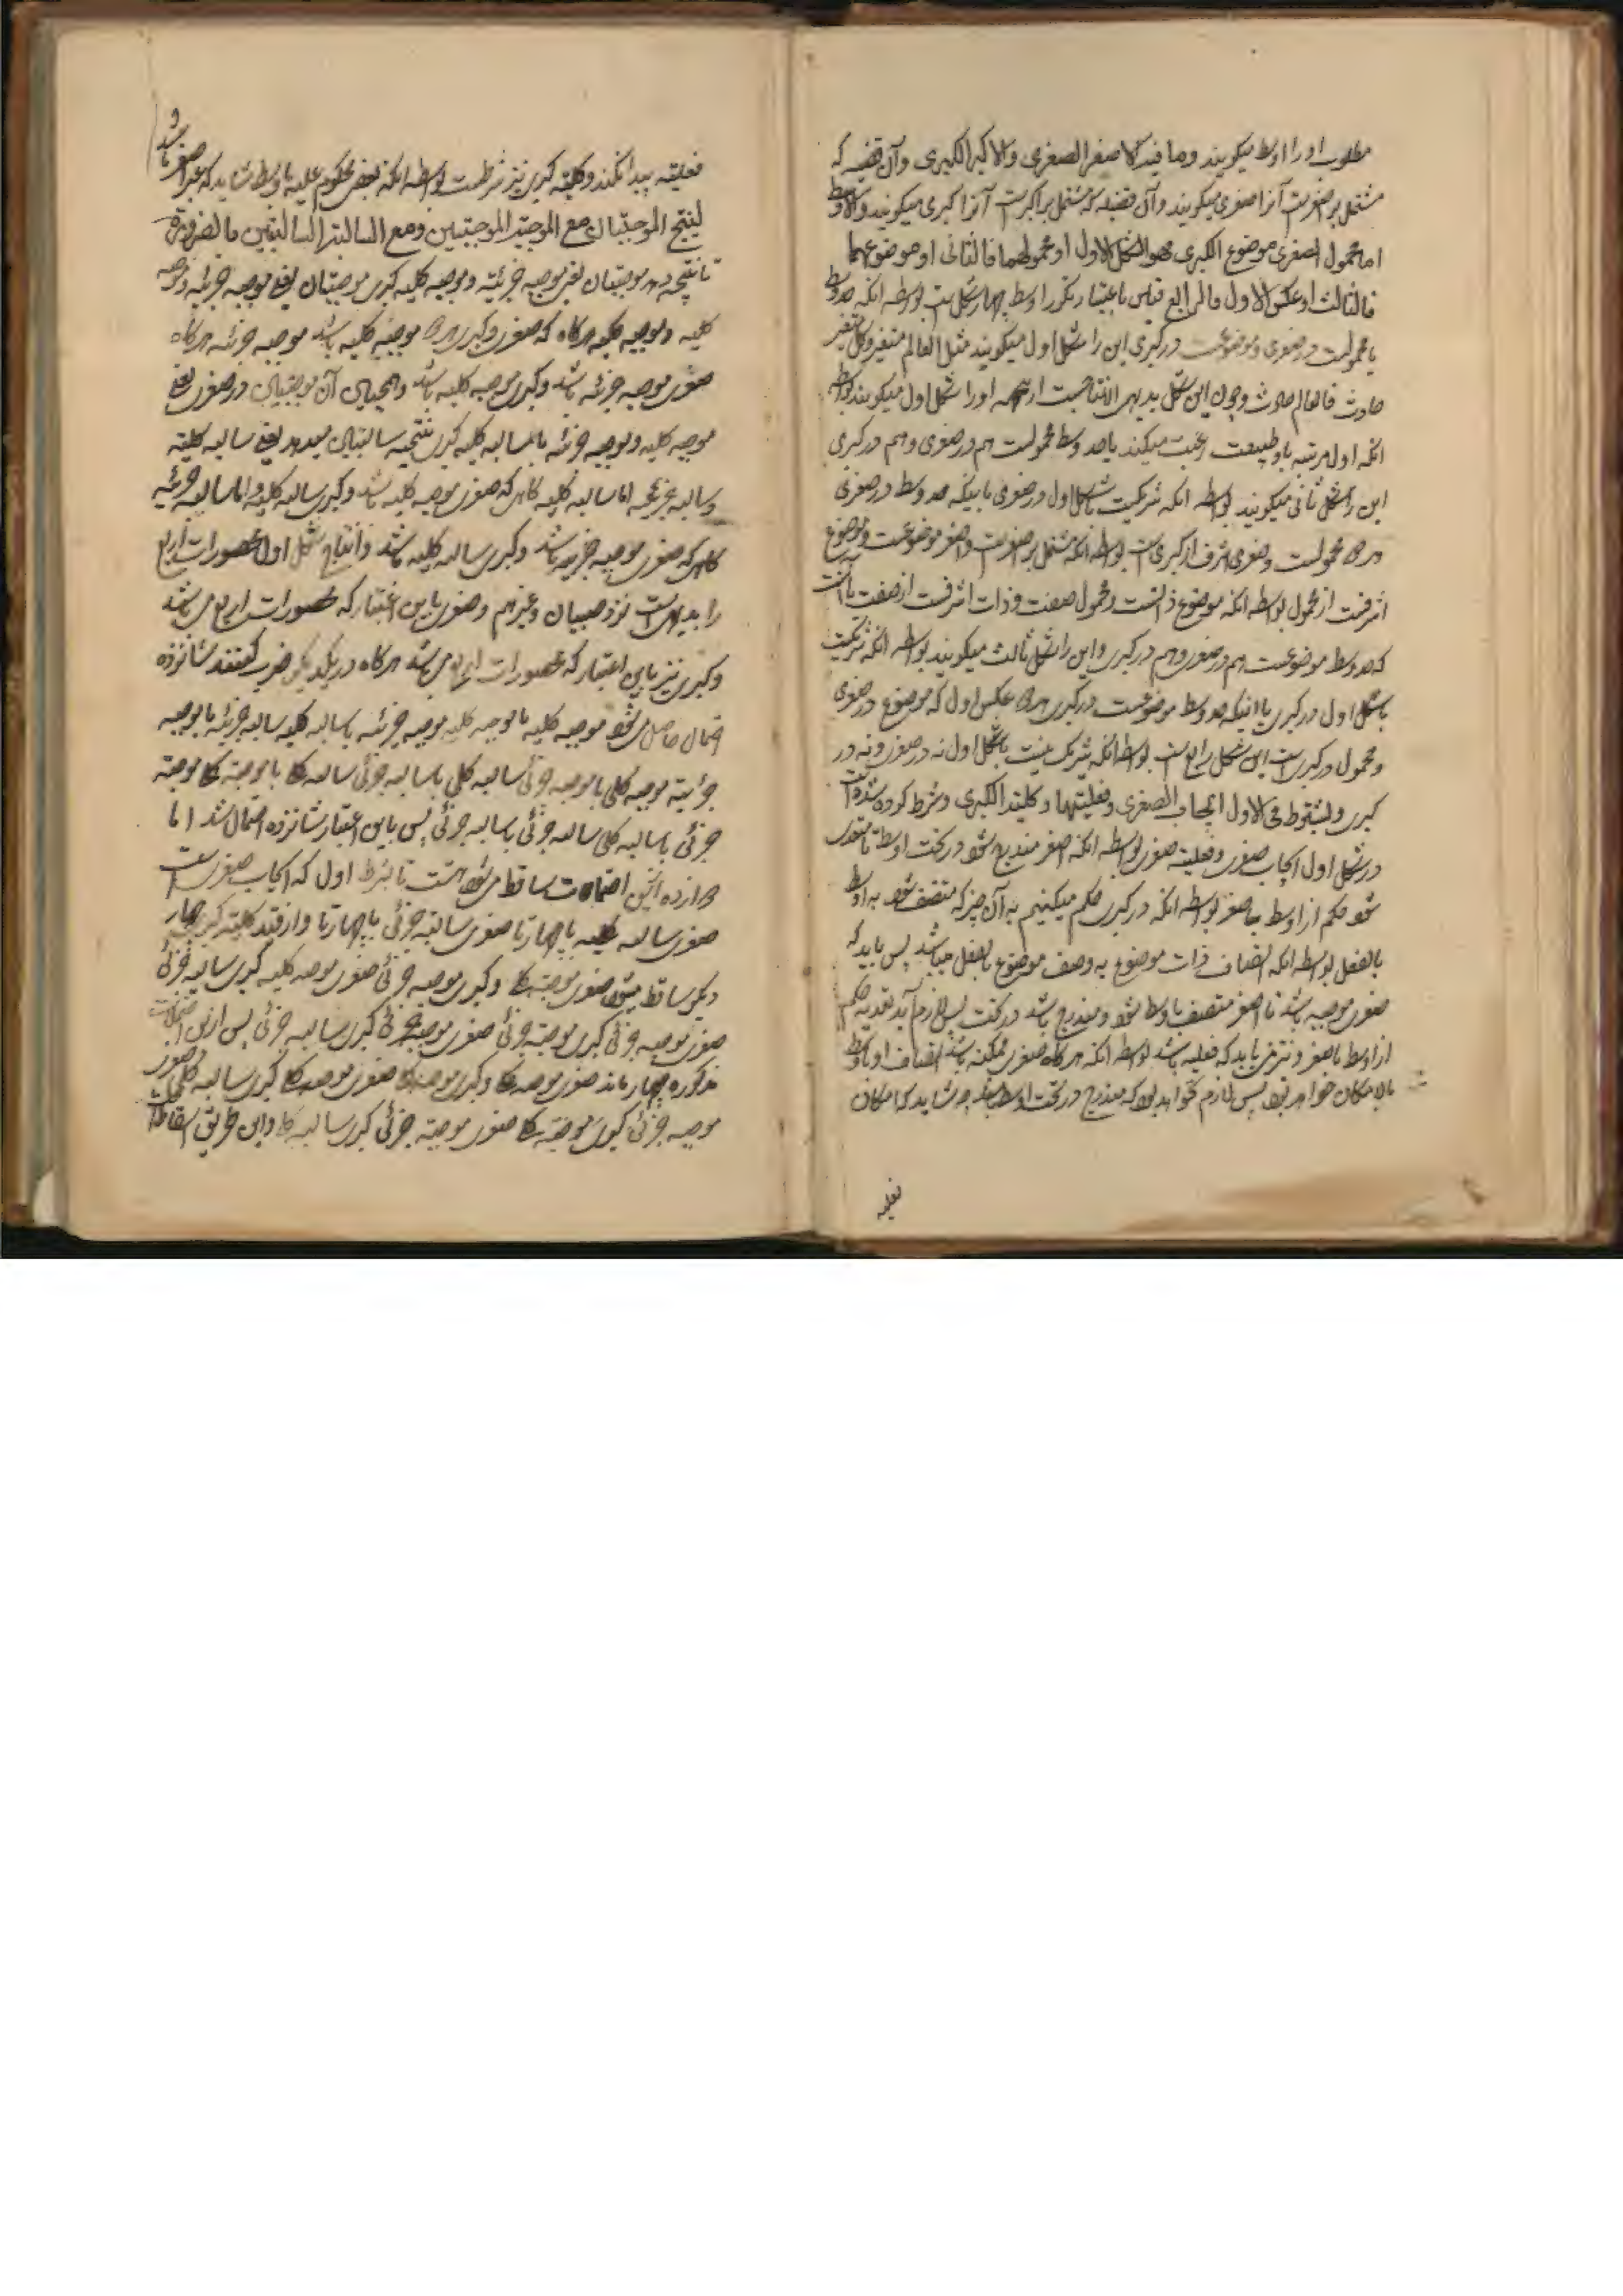 مطلوب او را اوسط میگویند وما فیه الاصغر الصغری والاکبر الکبری وآن قضیه که
مشتمل بر اصغرست آنرا صغری میگویند وآن قضیه که مشتمل بر اکبرست آنرا کبری میگویند والاوسط
اما محمول الصغری موضوع الکبری فهو الشکل الاول او محمولهما فالثانی او موضوعهما
فالثالث او عکس الاول فالرابع قیاس باعتبار تکرر اوسط چهار شکل است بواسطه آنکه حد وسط
یا محمولست در صغری و موضوعست در کبری این را شکل اول میگویند مثل العالم متغیر وکل متغیر
حادث فالعالم حادث وچون این شکل بدیهی الانتاجست او را شکل اول میگویند بواسطه
آنکه اول مرتبه باو طبیعت رغبت میکند یا حد وسط محمولست هم در صغری و هم در کبری
این را شکل ثانی میگویند بواسطه آنکه شریکست باشکل اول در صغری باینکه حد وسط در صغری
هر دو محمولست وصغری اشرف از کبری است بواسطه آنکه مشتمل بر اصغرست واصغر موضوعست وموضوع
اشرفست از محمول بواسطه آنکه موضوع ذاتست ومحمول صفت وذات اشرفست از صفت یا آنست
که حد وسط موضوعست هم در صغری وهم در کبری واین را شکل ثالث میگویند بواسطه آنکه شریکست
باشکل اول در کبری یا اینکه حد وسط موضوعست در کبری هر دو عکس اول که موضوع در صغری
ومحمول در کبری است این شکل رابع است بواسطه آنکه شریک نیست باشکل اول نه در صغری ونه در
کبری ویشترط فی الاول ایجاب الصغری وفعلیتها وکلیة الکبری وشرط کرده شده است
در شکل اول ایجاب صغری وفعلیة صغری بواسطه آنکه اصغر مندرج شود در تحت اوسط تا متعدی
شود حکم از اوسط باصغر بواسطه آنکه در کبری حکم میکنیم به آن چیز که متصف شود به اوسط
بالفعل بواسطه آنکه اتصاف ذات موضوع به وصف موضوع بالفعل میباشد پس باید که
صغری موجبه باشد تا اصغر متصف باوسط شود ومندرج باشد در تحت پس لازم آید تعدیه حکم
از اوسط باصغر ونیز می باید که فعلیه باشد بواسطه آنکه هر گاه صغری ممکنه باشد اتصاف او باوسط
بالامکان خواهد بود پس لازم نخواهد بود که مندرج در تحت اوسط باشد چه شاید که امکان
فعلیه
فعلیته پیدا نکند وکلیته کبری نیز شرطست بواسطه آنکه بعض محکوم علیه باوسط شاید که غیر اصغر باشد
لینتج الموجبتان مع الموجبة الموجبتین ومع السالبة السالبتین بالضرورة
تا نتیجه دهد موجبتان یعنی موجبه جزئیه وموجبه کلیه کبری موجبتان یعنی موجبه جزئیه وموجبه
کلیه وموجبه کلیه هرگاه که صغری وکبری هر دو موجبه کلیه باشد موجبه جزئیه هرگاه
صغری موجبه جزئیه باشد وکبری موجبه کلیه باشد وهمچنان آن موجبتان در صغری یعنی
موجبه کلیه وموجبه جزئیه باسالبه کلیه کبری نتیجه سالبتان میدهد یعنی سالبه کلیه
وسالبه جزئیه اما سالبه کلیه گاهی که صغری موجبه کلیه باشد وکبری سالبه کلیه واما سالبه جزئیه
گاهی که صغری موجبه جزئیه باشد وکبری سالبه کلیه باشد وانتاج شکل اول محصورات اربع
را بدیهی است نزد صبیان وغیرهم وصغری باین اعتبار که محصورات اربع می باشد
وکبری نیز باین اعتبار که محصورات اربع می باشد هرگاه در یکدیگر ضرب کنند شانزده
احتمال حاصل می شود موجبه کلیه با موجبه کلیه موجبه جزئیه باسالبه کلیه سالبه جزئیه با موجبه
جزئیه موجبه کلی با موجبه جزئی سالبه کلی باسالبه جزئی سالبه کلی با موجبه کلی موجبه
جزئی باسالبه کلی سالبه جزئی باسالبه جزئی پس باین اعتبار شانزده احتمال شد اما
دوازده ازین احتمالات ساقط می شود هشت تا بشرط اول که ایجاب صغری است
صغری سالبه کلیه با چهار تا صغری سالبه جزئی با چهار تا واز قید کلیته کبری چهار
دیگر ساقط میشود صغری موجبه کلی وکبری موجبه جزئی صغری موجبه کلیه کبری سالبه جزئی
صغری موجبه جزئی کبری موجبه جزئی صغری موجبه جزئی کبری سالبه جزئی پس ازین احتمالات
مذکوره چهار ماند صغری موجبه کلی وکبری موجبه کلی صغری موجبه کلی کبری سالبه کلی صغری
موجبه جزئی کبری موجبه کلی صغری موجبه جزئی کبری سالبه کلی واین طریق اسقاط است